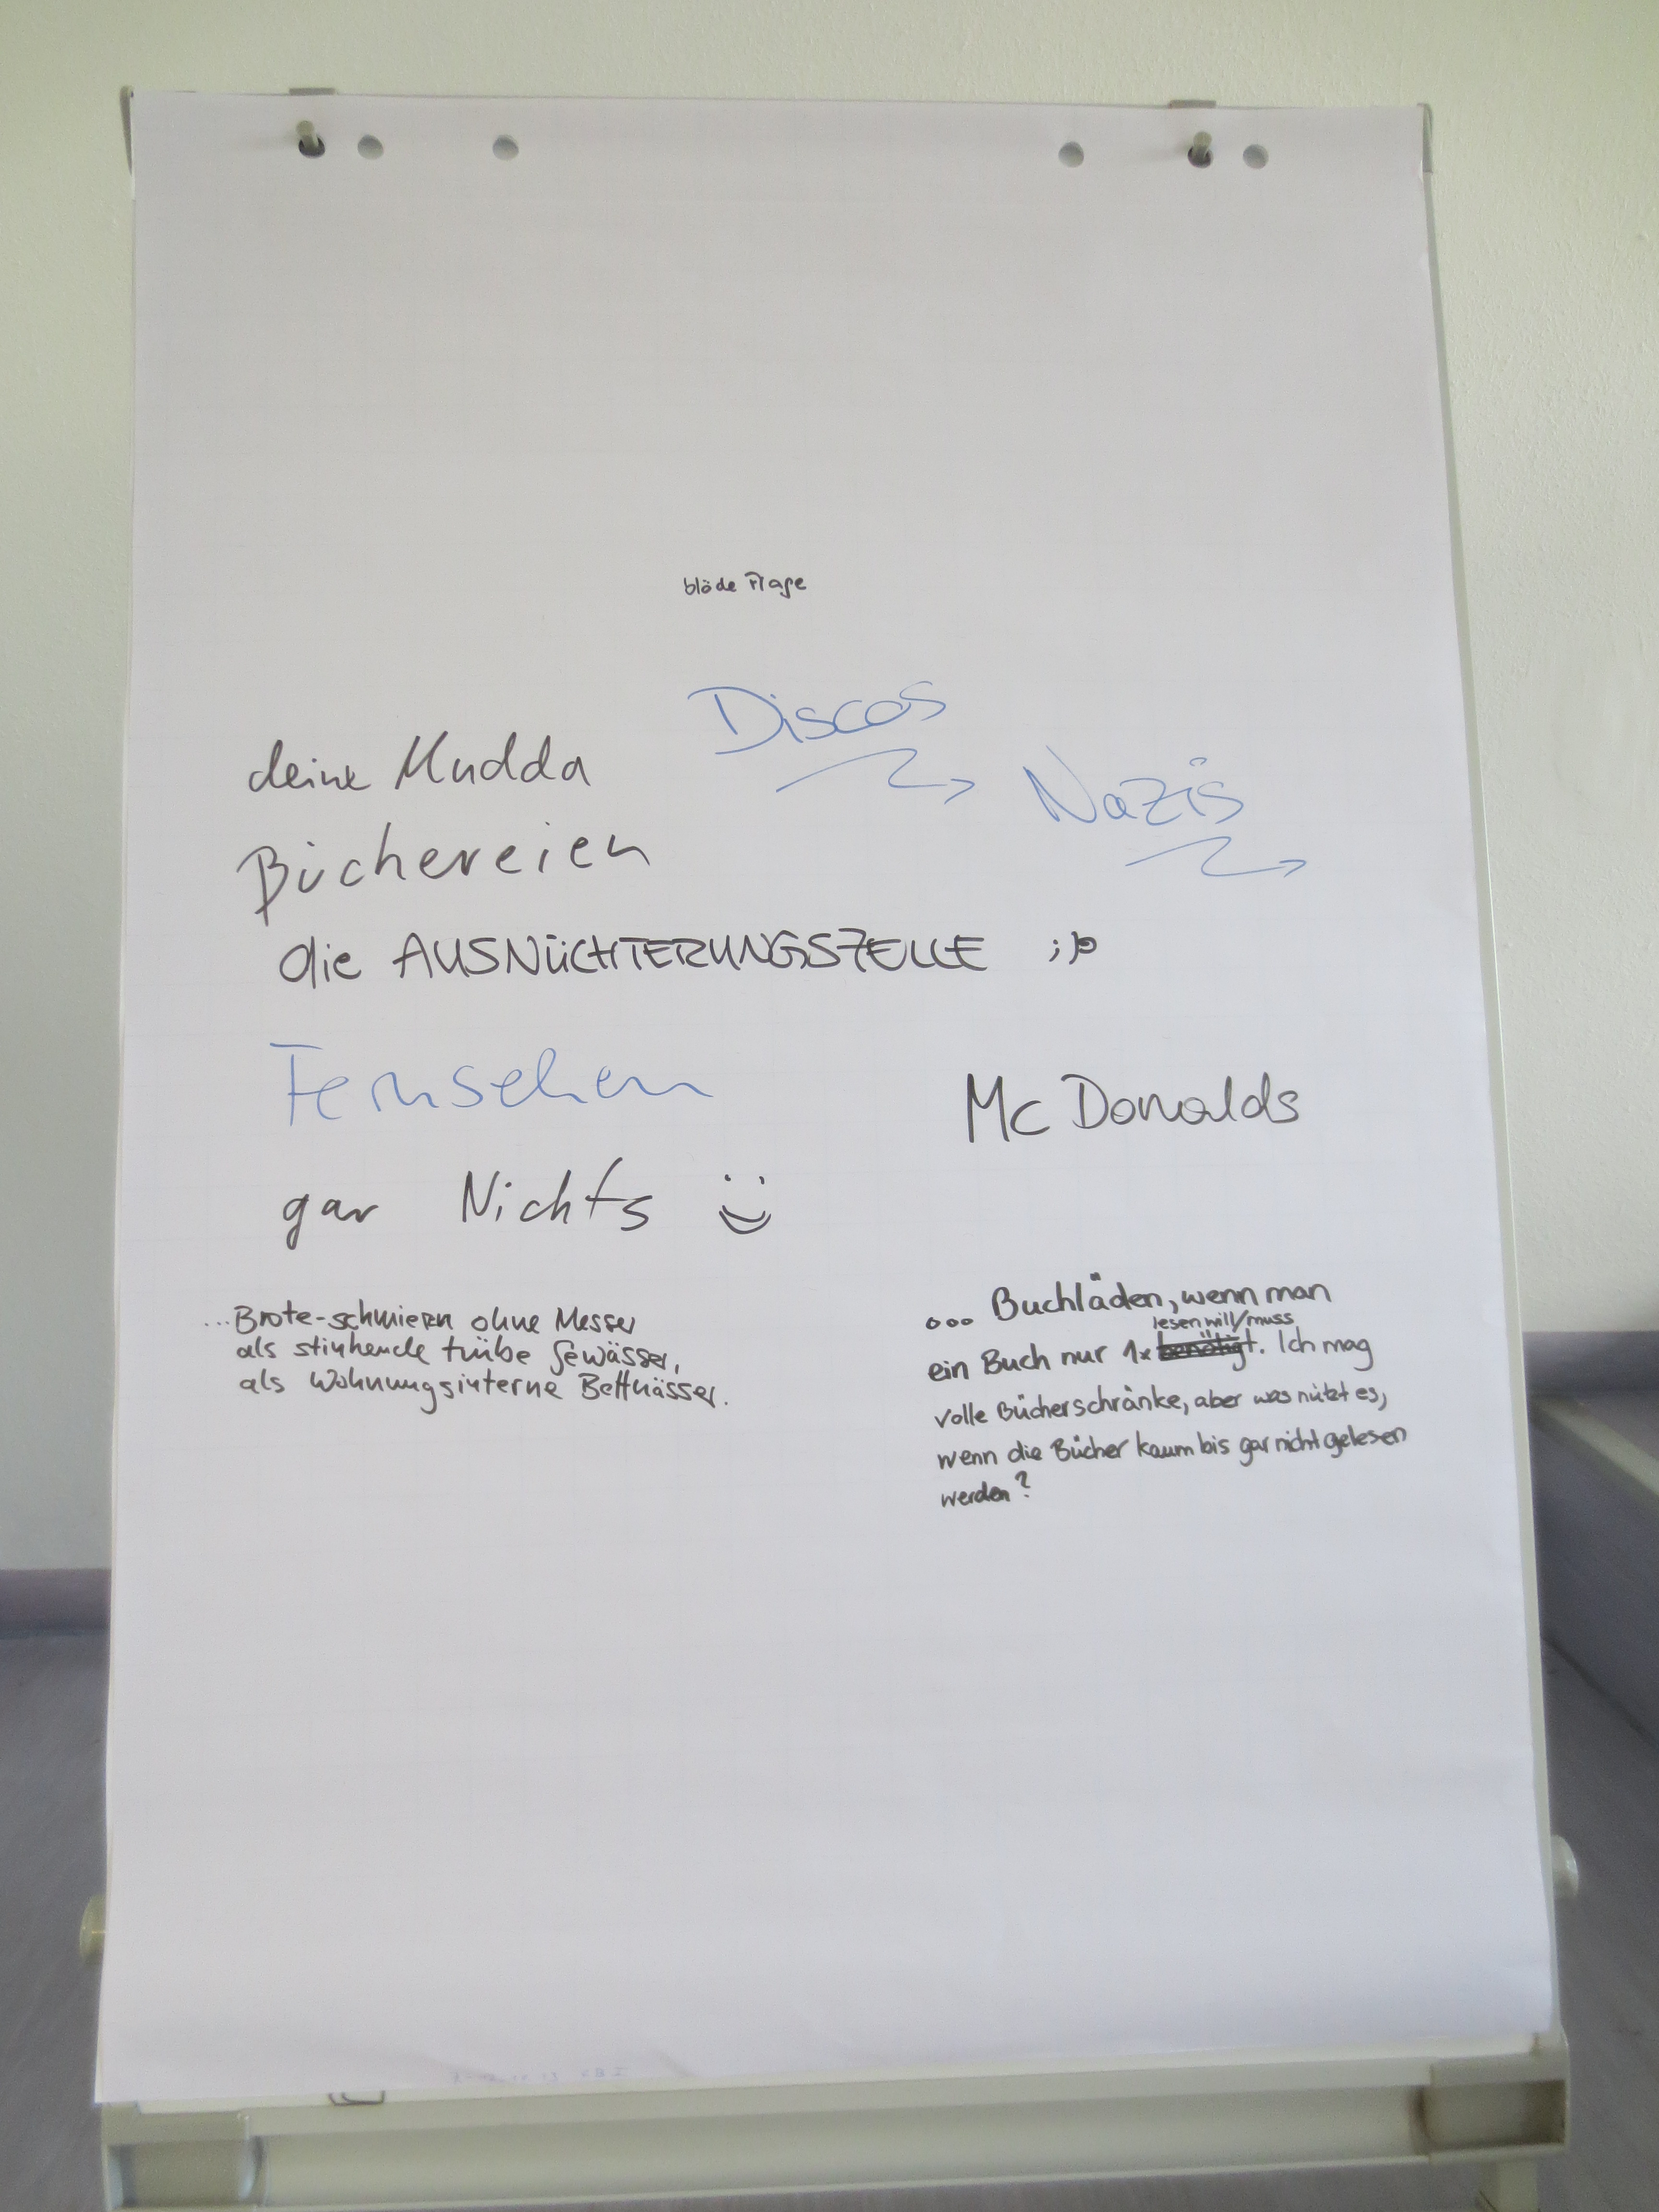 blöde Frage
Discos
deine Mudda
Nazis
Büchereien
die AUSNÜCHTERUNGSZELLE ;P
Fernsehen
Mc Donalds
gar Nichts
...Brote-schmiern ohne Messer
als stinkende trübe Gewässer,
als Wohnungsinterne Bettnässer.
... Buchläden, wenn man
lesen will/muss
ein Buch nur 1x benötigt. Ich mag
volle Bücherschränke, aber was nützt es,
wenn die Bücher kaum bis gar nicht gelesen
werden?